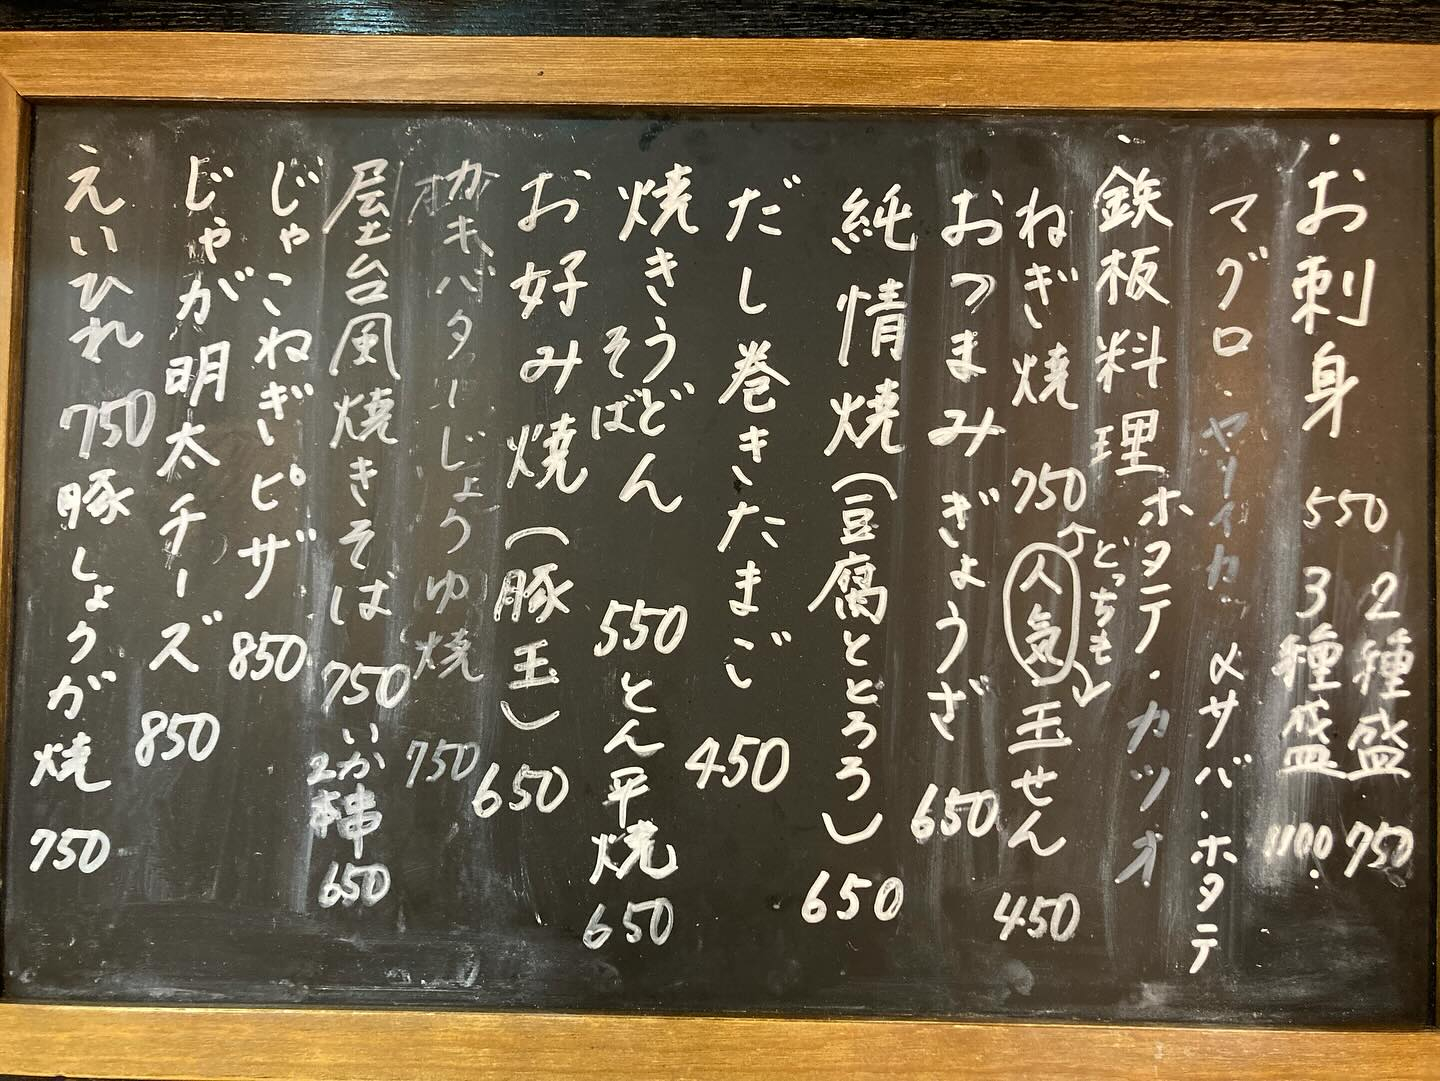 ・お刺身 550
2種盛 750
3種盛 1100.
マグロ・ヤリイカ
〆サバ・ホタテ
ホタテ・カツオ
・鉄板料理
ねぎ焼 750
どっちも
人気
玉せん 450
おつまみぎょうざ 650
純情焼(豆腐ととろろ) 650
だし巻きたまご 450
焼きうどん
そば
550
とん平焼 650
お好み焼(豚玉) 650
カキバターじょうゆ焼 750
屋台風焼きそば 750
いか串
2本
650
じゃこねぎピザ 850
じゃが明太チーズ 850
えいひれ 750
豚しょうが焼 750